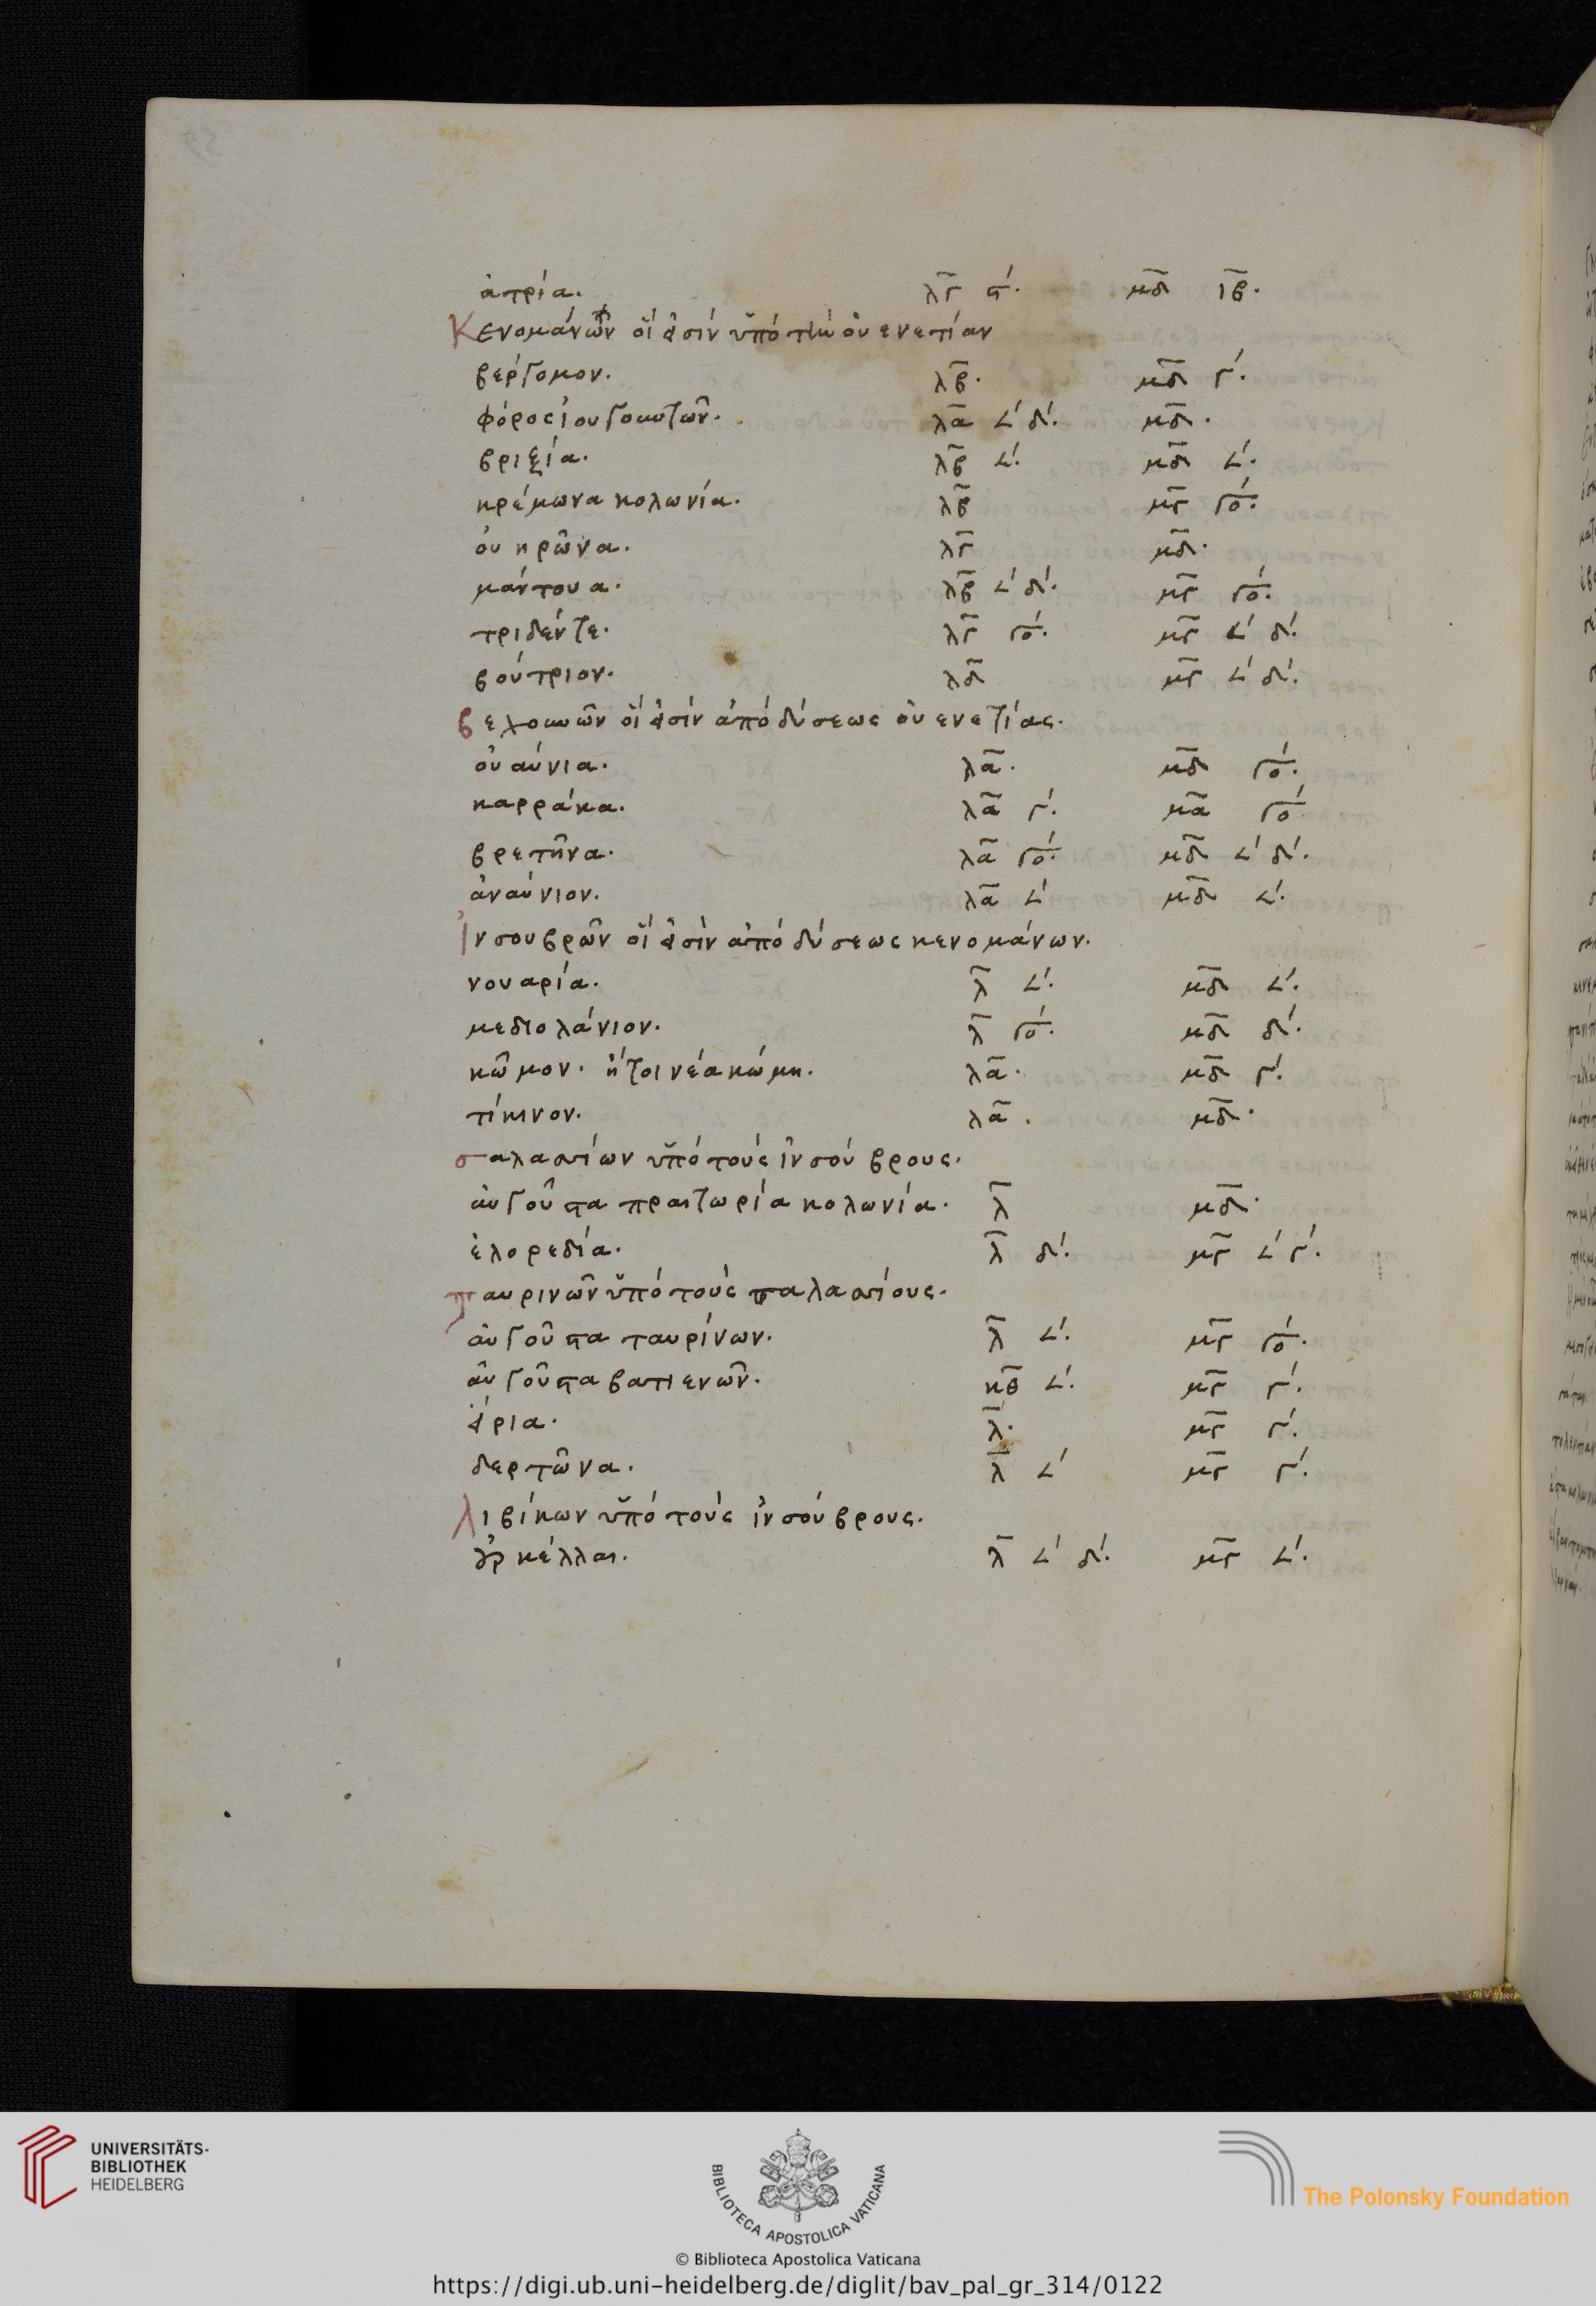 ἀτρία. λγ ϛ΄. μδ ιβ.
Κενομάνων οἵ εἰσὶν ὑπὸ τὴν οὐενετίαν
βέργομον. λβ. μδ γ΄.
φόρος ἰουγουντῶν. λα 𐅵΄ δ΄. μδ.
βριξία. λβ 𐅵΄. μδ 𐅵΄.
κρέμωνα κολωνία. λβ μγ γο΄.
οὐηρῶνα. λγ μδ.
μάντουα. λβ 𐅵΄ δ΄. μγ γο΄.
τριδέντε. λγ γο΄. μγ 𐅵΄ δ΄.
βούτριον. λδ μγ 𐅵΄ δ΄.
βεχουνῶν οἵ εἰσὶν ἀπὸ δύσεως οὐενετίας.
οὐαύνια. λα. μδ γο΄.
καρράκα. λα γ΄. μα γο΄
βρετῆνα. λα γο΄. μδ 𐅵΄ δ΄.
ἀναύνιον. λα 𐅵΄ μδ 𐅵΄.
Ἰνσουβρῶν οἵ εἰσὶν ἀπὸ δύσεως κενομάνων.
νουαρία. λ 𐅵΄. μδ 𐅵΄.
μεδιολάνιον. λ γο΄. μδ δ΄.
κῶμον. ἤτοι νέα κώμη. λα. μδ γ΄.
τίκινον. λα. μδ.
σαλασσίων ὑπὸ τοὺς ἰνσούβρους.
αὐγοῦστα πραιτωρία κολωνία. λ μδ.
ἐλορεδία. λ δ΄. μγ 𐅵΄ γ΄.
ταυρινῶν ὑπὸ τοὺς σαλασσίους.
αὐγοῦστα ταυρίνων. λ 𐅵΄. μγ γο΄.
αὐγοῦστα βατιενῶν. κθ 𐅵΄. μγ γ΄.
εἴρια. λ. μγ γ΄.
δερτῶνα. λ 𐅵΄ μγ γ΄.
λιβίκων ὑπὸ τοὺς ἰνσούβρους.
οὐρκέλλαι. λ 𐅵΄ δ΄. μγ 𐅵΄.
UNIVERSITÄTS-
BIBLIOTHEK
HEIDELBERG
BIBLIOTECA APOSTOLICA VATICANA
The Polonsky Foundation
© Biblioteca Apostolica Vaticana
https://digi.ub.uni-heidelberg.de/diglit/bav_pal_gr_314/0122